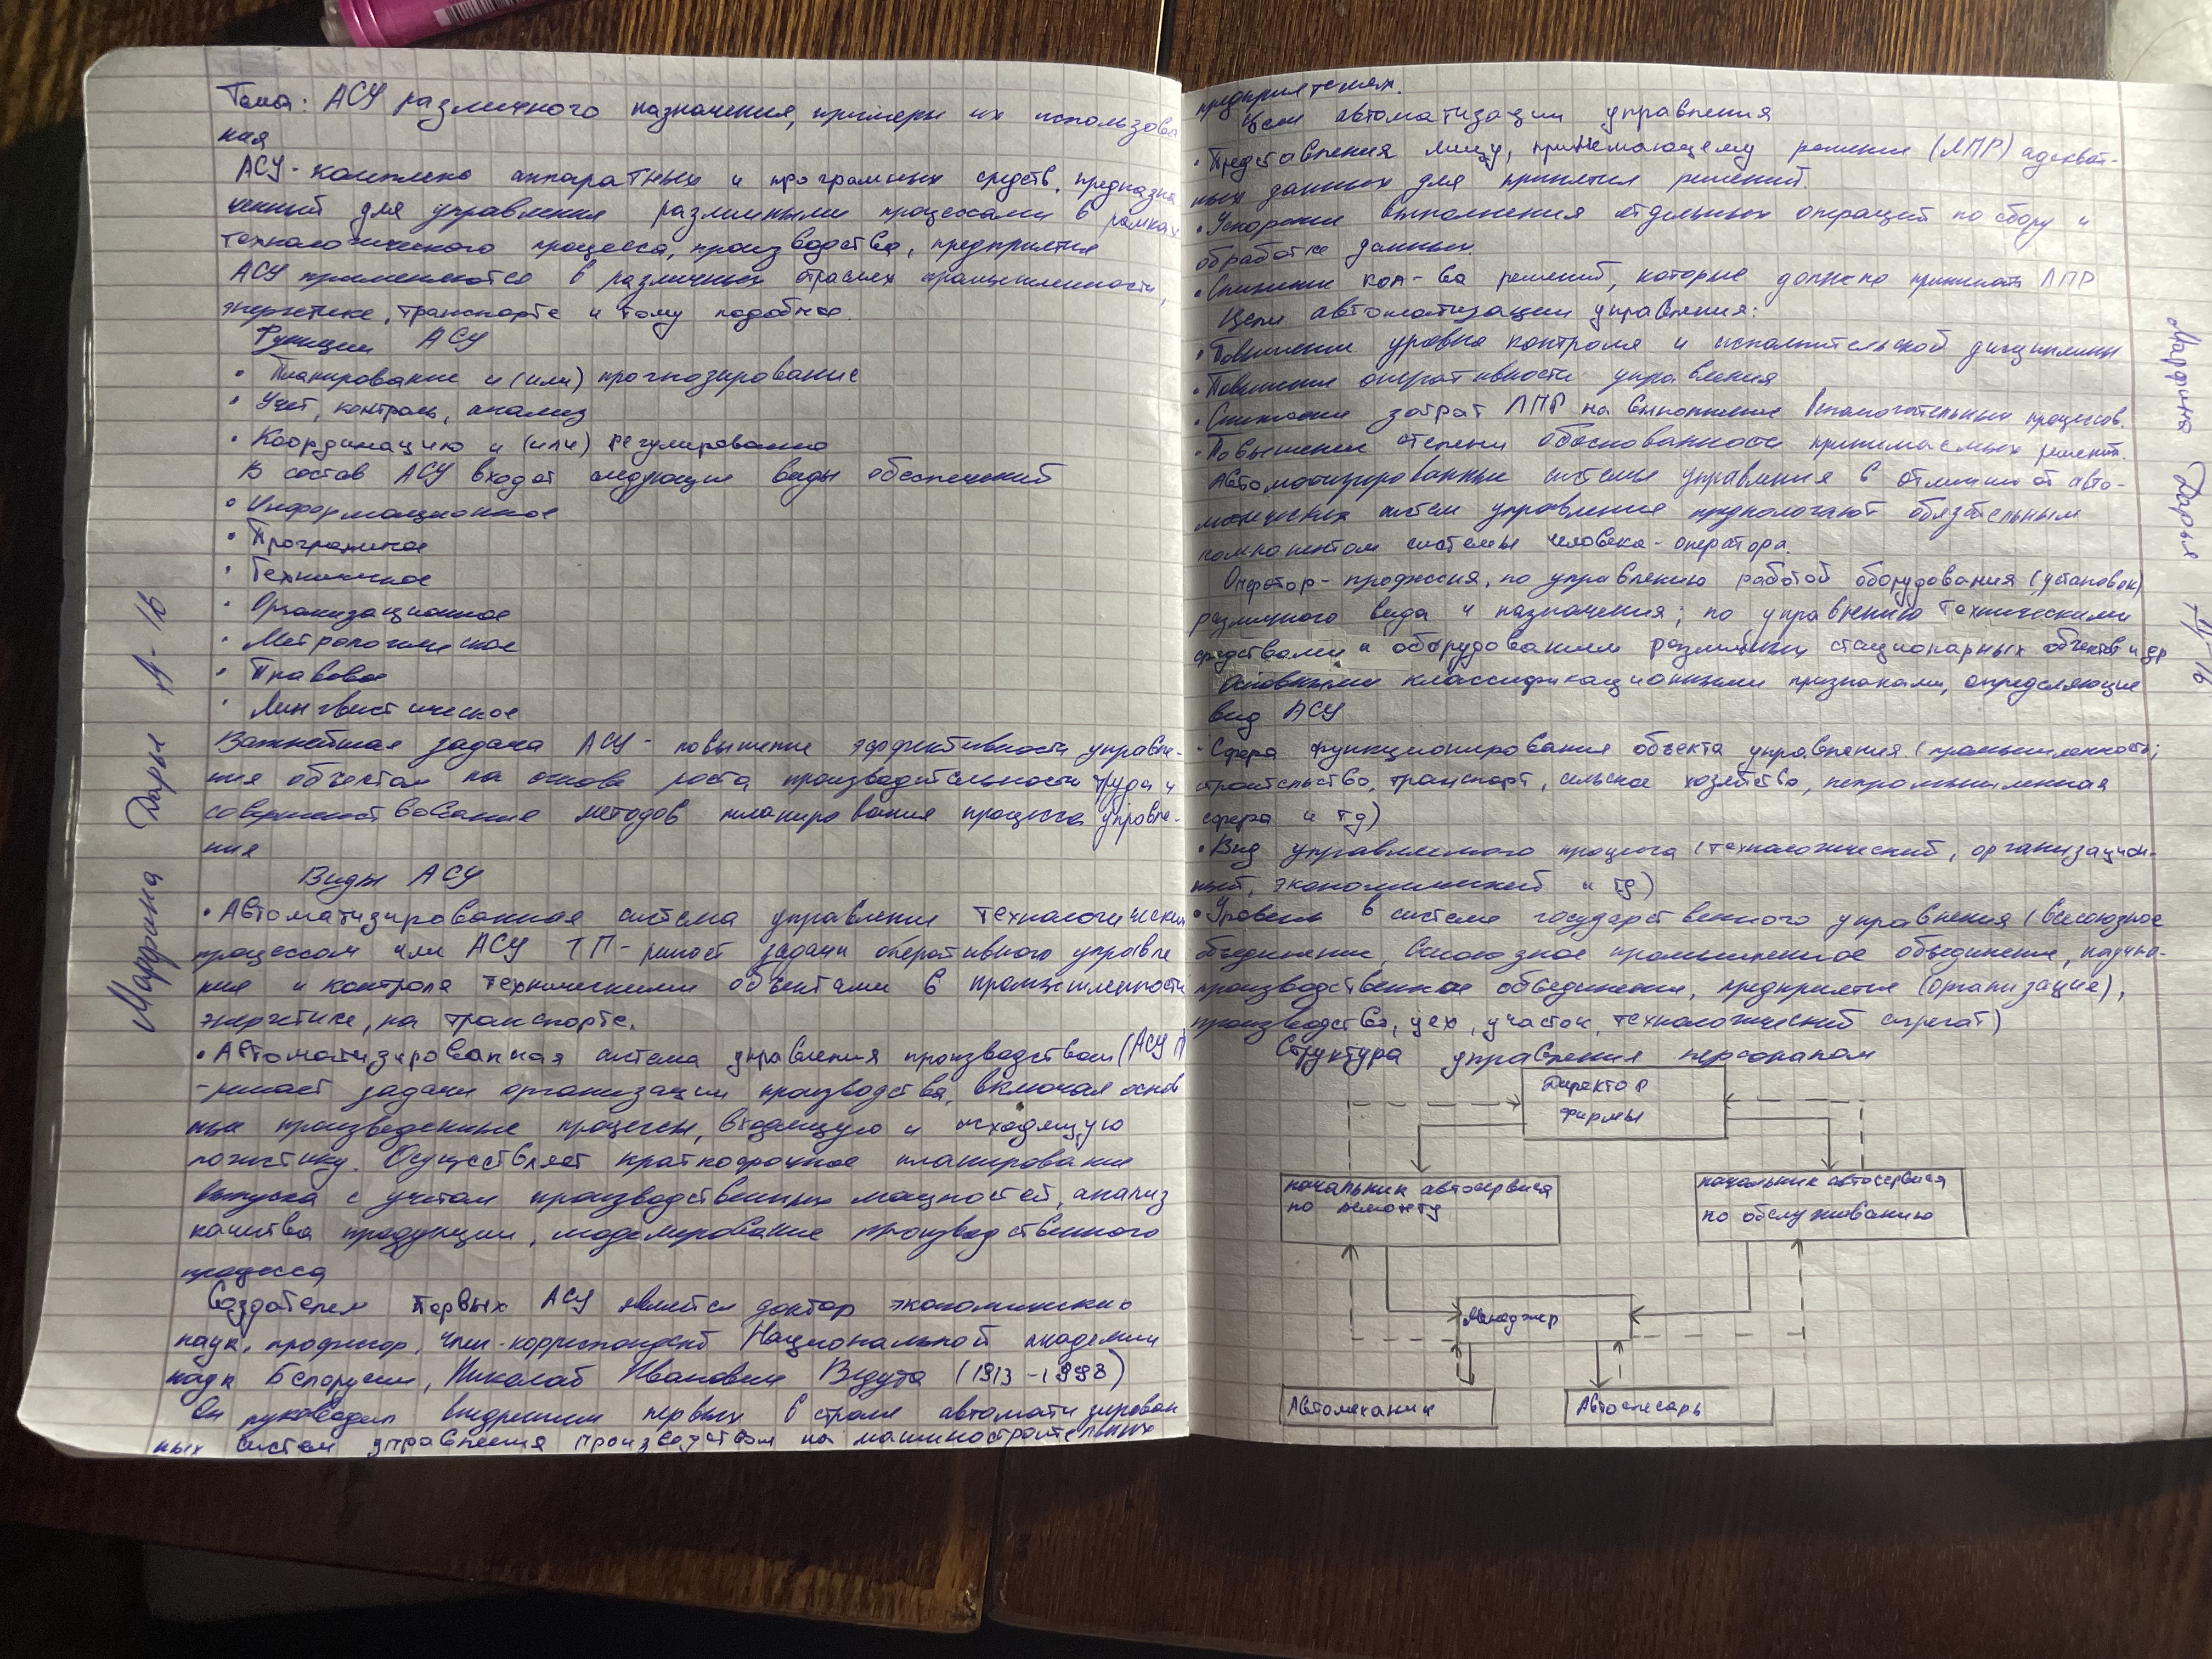 Тема: АСУ различного назначения, примеры их использова
ния
АСУ - комплекс аппаратных и програмных средств, предназна
ченный для управления различными процессами в рамках
технологического процесса, производства, предприятия
АСУ применяются в различных отраслях промышленности,
энергетике, транспорте и тому подобное.
Функции АСУ
• Планирование и (или) прогнозирование
• Учет, контроль, анализ
• Координацию и (или) регулирование
В состав АСУ входят следующие виды обеспечений
• Информационное
• Програмное
• Техническое
• Организационное
• Метрологическое
• Правовое
• Лингвистическое
Важнейшая задача АСУ - повышение эффективности управле-
ния объектом на основе роста производительности труда и
совершенствование методов планирования процесса управле-
ния
Виды АСУ
• Автоматизированная система управления технологическим
процессом или АСУ ТП - решает задачи оперативного управле
ния и контроля техническими объектами в промышленности
энергетике, на транспорте.
• Автоматизированная система управления производством (АСУ П
- решает задачи организации производства, включая основ
ные произведенные процессы, входящую и исходящую
логистику. Осуществляет краткосрочное планирование
выпуска с учетом производственных мощностей, анализ
качества продукции, моделирование производственного
процесса
Создателем первых АСУ является доктор экономических
наук, профессор, член-корреспондент Национальной академии
наук Белорусии, Николай Иванович Ведута (1913 - 1998)
Он руководил внедрением первых в стране автоматизирован
ных систем управления производством на машиностроительных
Марфина Дарья 1А-1б
предприятиях.
Цели автоматизации управления
• Представления лицу, принемающему решение (ЛПР) адекват-
ных данных для принятия решений.
• Ускорение выполнения отдельных операций по сбору и
обработке данных.
• Снижение кол-ва решений, которые должно принимать ЛПР
Цели автоматизации управления:
• Повышение уровня контроля и исполнительской дисциплины
• Повышение оперативности управления
• Снижение затрат ЛПР на выполнение вспомогательных процессов.
• Повышение степени обоснованности принимаемых решений.
Автоматизированные системы управления в отличии от авто-
матических систем управления предпологают обязательным
компонентом системы человека-оператора.
Оператор - профессия, по управлению работой оборудования (установок)
различного вида и назначения; по управлению техническими
средствами и оборудованием различных стационарных объектов и др
Основными классификационными признаками, определяющие
вид АСУ
• Сфера функционирования объекта управления (промышленность,
строительство, транспорт, сельское хозяйство, непромышленная
сфера и тд)
• Вид управляемого процесса (технологический, организацион-
ный, экономический и тд)
• Уровень в системе государственного управления (всесоюзное
объединение, Всесоюзное промышленное объединение, научно-
производственное объединение, предприятие (организация),
производство, цех, участок, технологический агрегат)
Структура управления персоналом
Директор
фирмы
начальник автосервиса
по ремонту
начальник автосервиса
по обслуживанию
Менеджер
Автомеханик
Автослесарь
Марфина Дарья